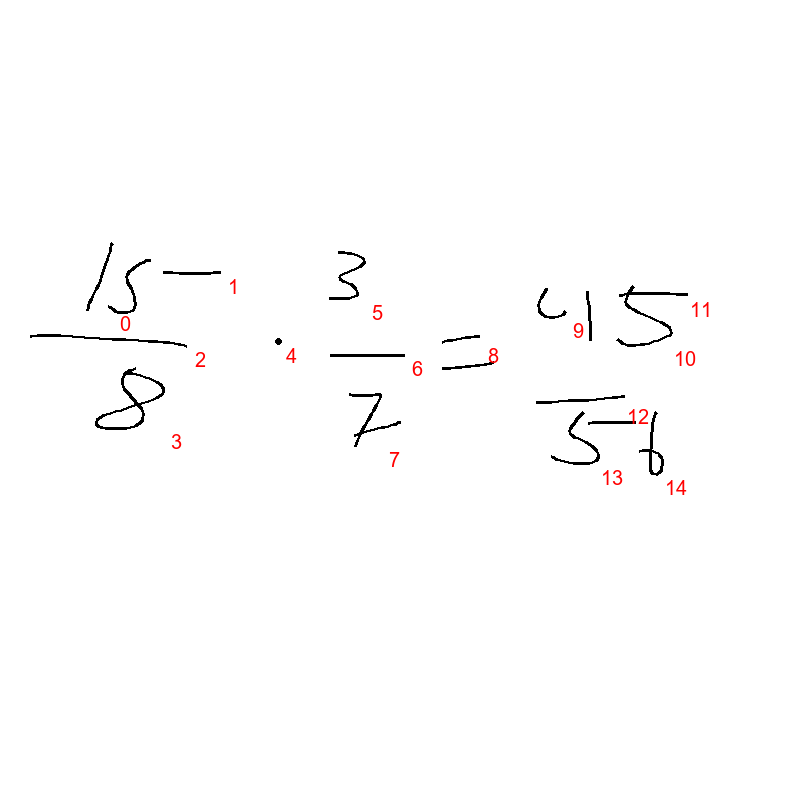 15/8 · 3/7 = 45/56
0 1 2 3 4 5 6 7 8 9 10 11 12 13 14